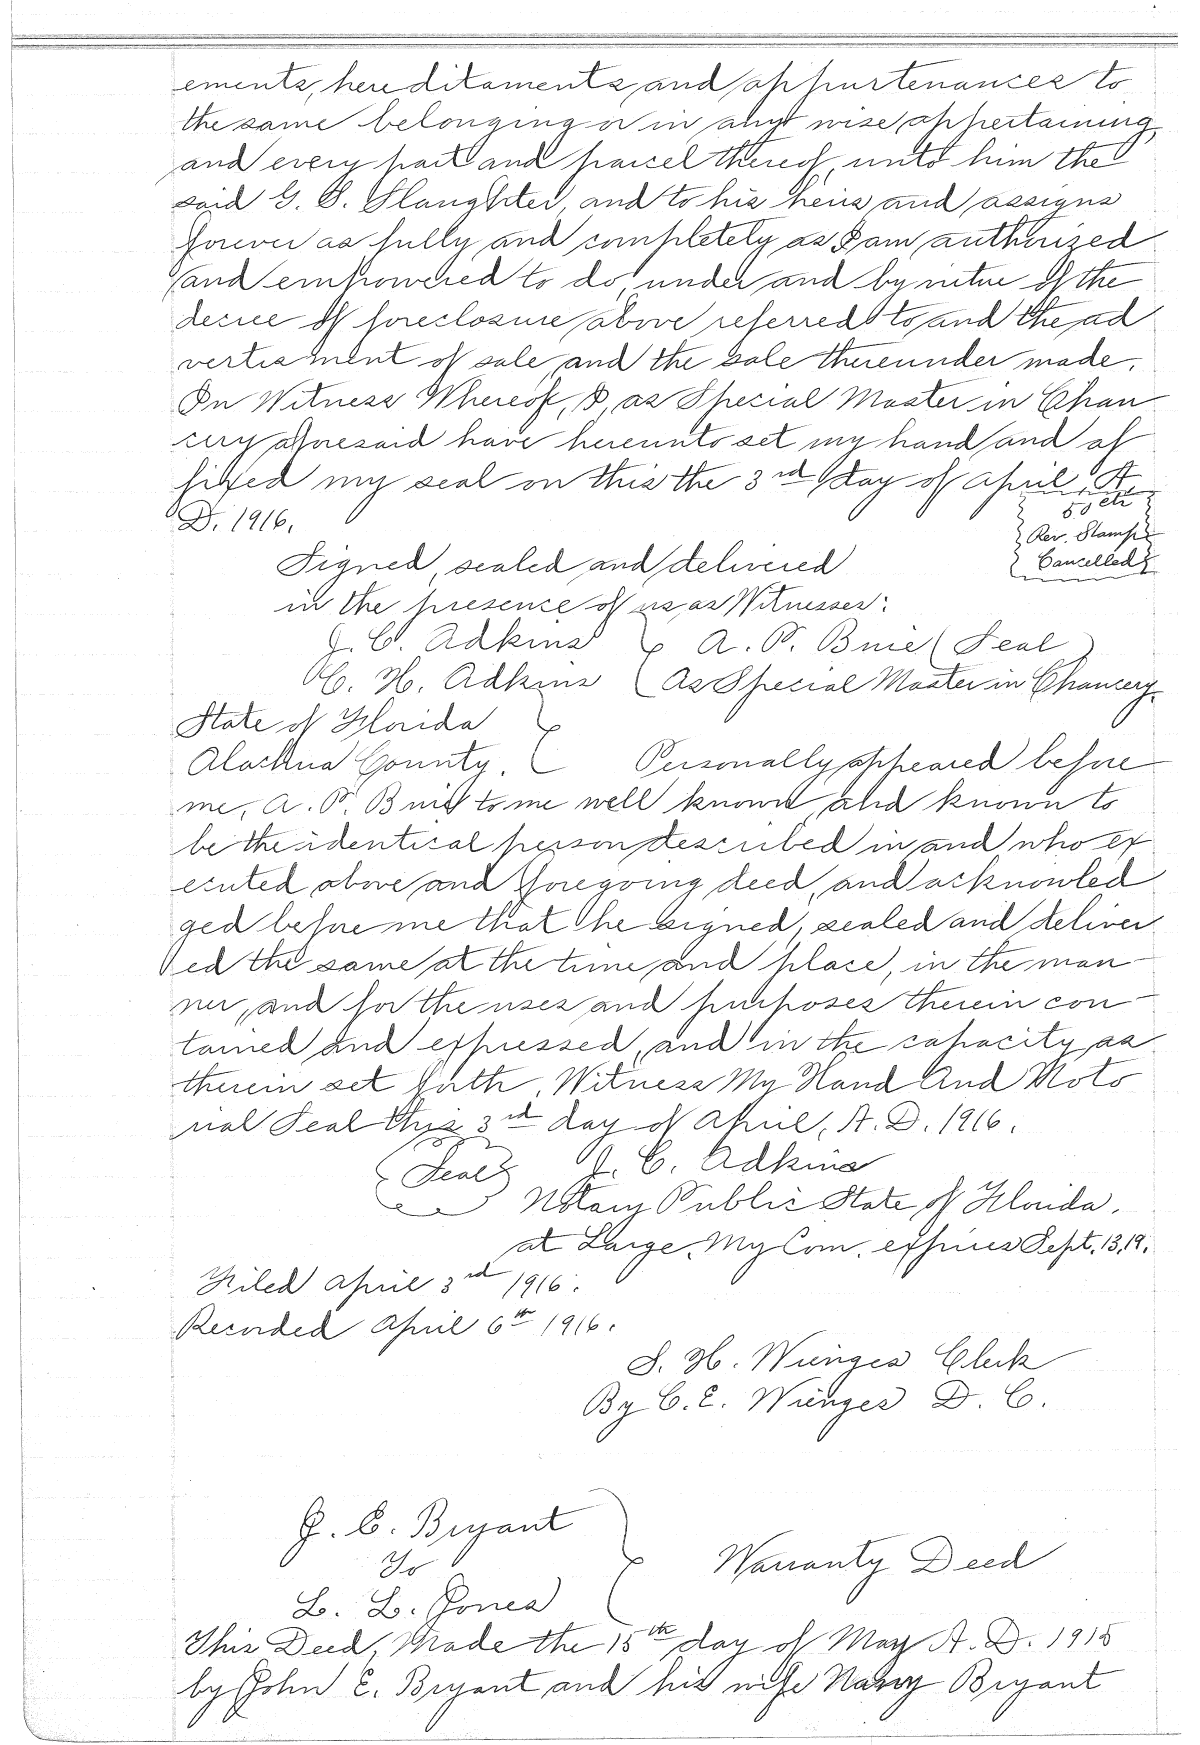 ements, hereditaments, and appurtenances to
the same belonging or in any wise appertaining,
and every part and parcel thereof, unto him the
said G. S. Slaughter, and to his heirs and assigns
forever as fully and completely as I am authorized
and empowered to do, under and by virtue of the
decree of foreclosure above referred to and the ad
vertisment of sale, and the sale thereunder made.
In Witness Whereof, I, as Special Master in Chan
cery aforesaid have hereunto set my hand and af
fixed my seal on this the 3rd day of April, A.
D. 1916.
50 cts
Rev. Stamps
Cancelled
Signed, sealed and delivered
in the presence of us, as Witnesses:
J. C. Adkins A. P. Buie (Seal)
C. H. Adkins As Special Master in Chancery.
State of Florida
Alachua County. Personally appeared before
me, A. P. Buie to me well known, and known to
be the identical person described in and who ex
ecuted above and foregoing deed, and acknowled
ged before me that he signed, sealed and deliver
ed the same at the time and place, in the man-
ner, and for the uses and purposes therein con-
tained and expressed, and in the capacity as
therein set forth. Witness My Hand And Nota
rial Seal this 3rd day of April, A. D. 1916.
(Seal) J. C. Adkins
Notary Public State of Florida.
at Large. My Com. expires Sept. 13, 19.
Filed April 3rd 1916.
Recorded April 6th 1916.
S. H. Wienges Clerk
By C. E. Wienges D. C.
J. E. Bryant
To
Warranty Deed
L. L. Jones
This Deed, Made the 15th day of May A. D. 1915
by John E. Bryant and his wife Bryant